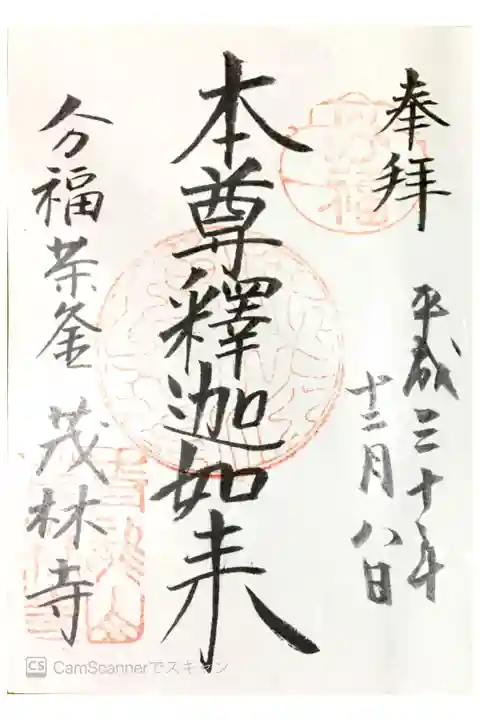 奉拝
平成三十年
十二月八日
本尊釋迦如来
分福茶釜 茂林寺
CS CamScannerでスキャン